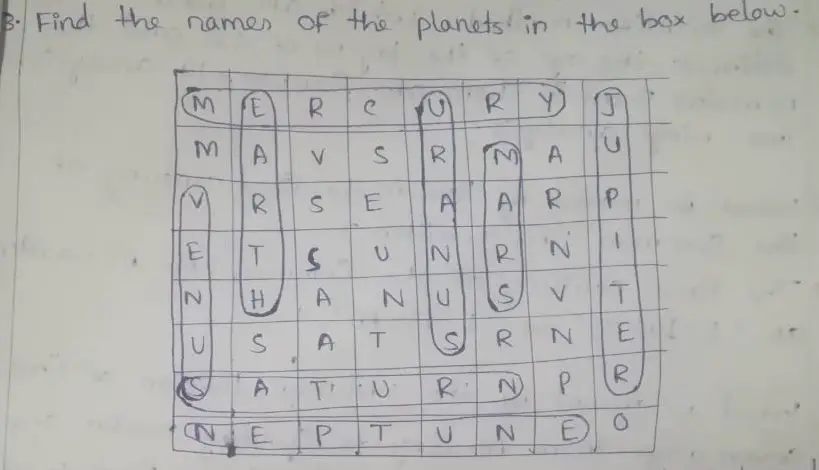 3. Find the names of the planets in the box below.
M E R C U R Y J
M A V S R M A U
V R S E A A R P
E T S U N R N I
N H A N U S V T
U S A T S R N E
S A T U R N P R
N E P T U N E O